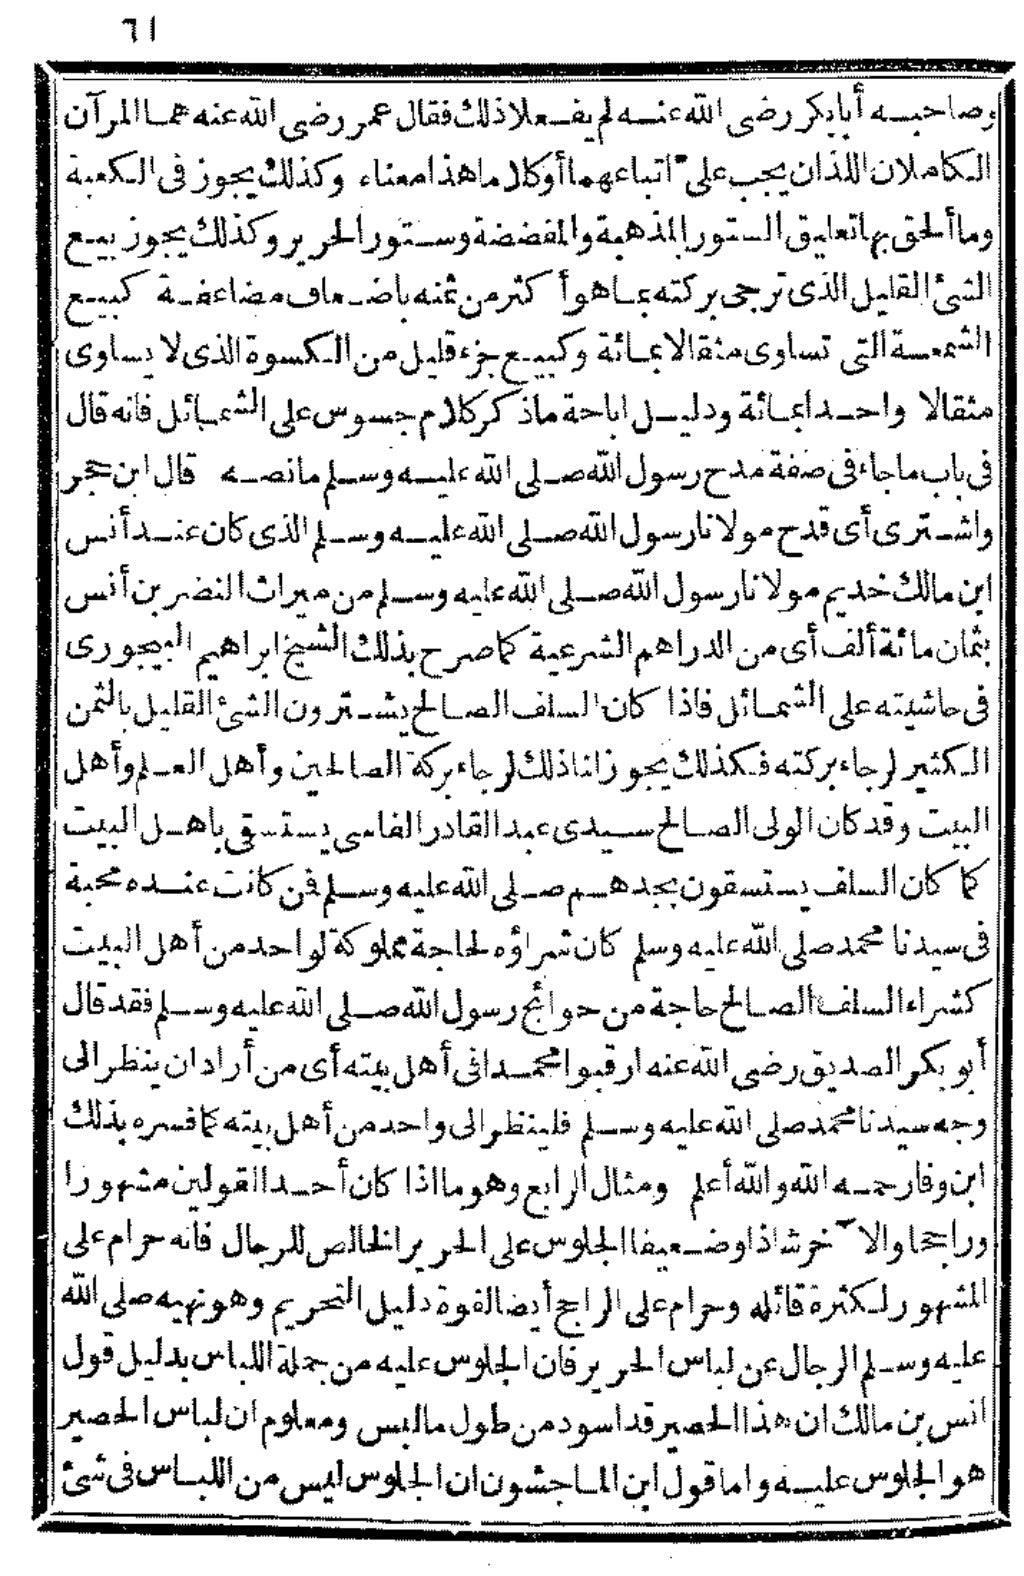 ٦١
وصاحبه أبابكر رضى الله عنه لم يفعلا ذلك فقال عمر رضى الله عنه هما المرآن
الكاملان اللذان يجب على اتباعهما أو كلاما هذا معناه وكذلك يجوز فى الكعبة
وما ألحق بها تعليق الستور المذهبة والمفضضة وستور الحرير وكذلك يجوز بيع
الشئ القليل الذى ترجى بركته بما هو أكثر من ثمنه باضعاف مضاعفة كبيع
الشمعة التى تساوى مثقالا بمائة وكبيع جزء قليل من الكسوة الذى لا يساوى
مثقالا واحدا بمائة ودليل اباحة ماذكر كلام جسوس على الشمائل فانه قال
فى باب ماجاء فى صفة مدح رسول الله صلى الله عليه وسلم مانصه قال ابن حجر
واشترى أى قدح مولانا رسول الله صلى الله عليه وسلم الذى كان عند أنس
ابن مالك خديم مولانا رسول الله صلى الله عليه وسلم من ميراث النضر بن أنس
بثمان مائة ألف أى من الدراهم الشرعية كما صرح بذلك الشيخ ابراهيم البيجورى
فى حاشيته على الشمائل فاذا كان السلف الصالح يشترون الشئ القليل بالثمن
الكثير لرجاء بركته فكذلك يجوز لنا ذلك لرجاء بركة الصالحين وأهل العلم وأهل
البيت وقد كان الولى الصالح سيدى عبد القادر الفاسى يستسقى باهل البيت
كما كان السلف يستسقون بجدهم صلى الله عليه وسلم فمن كانت عنده محبة
فى سيدنا محمد صلى الله عليه وسلم كان شراؤه لحاجة مملوكة لواحد من أهل البيت
كشراء السلف الصالح حاجة من حوائج رسول الله صلى الله عليه وسلم فقد قال
أبو بكر الصديق رضى الله عنه ارقبوا محمدا فى أهل بيته أى من أراد ان ينظر الى
وجه سيدنا محمد صلى الله عليه وسلم فلينظر الى واحد من أهل بيته كما فسره بذلك
ابن وفا رحمه الله والله أعلم ومثال الرابع وهو ما اذا كان أحد القولين مشهورا
وراجحا والآخر شاذا وضعيفا الجلوس على الحرير الخالص للرجال فانه حرام على
المشهور لكثرة قائله وحرام على الراجح أيضا لقوة دليل التحريم وهو نهيه صلى الله
عليه وسلم الرجال عن لباس الحرير فان الجلوس عليه من جملة اللباس بدليل قول
انس بن مالك ان هذا الحصير قد اسود من طول مالبس ومعلوم ان لباس الحصير
هو الجلوس عليه واما قول ابن الماجشون ان الجلوس ليس من اللباس فى شئ